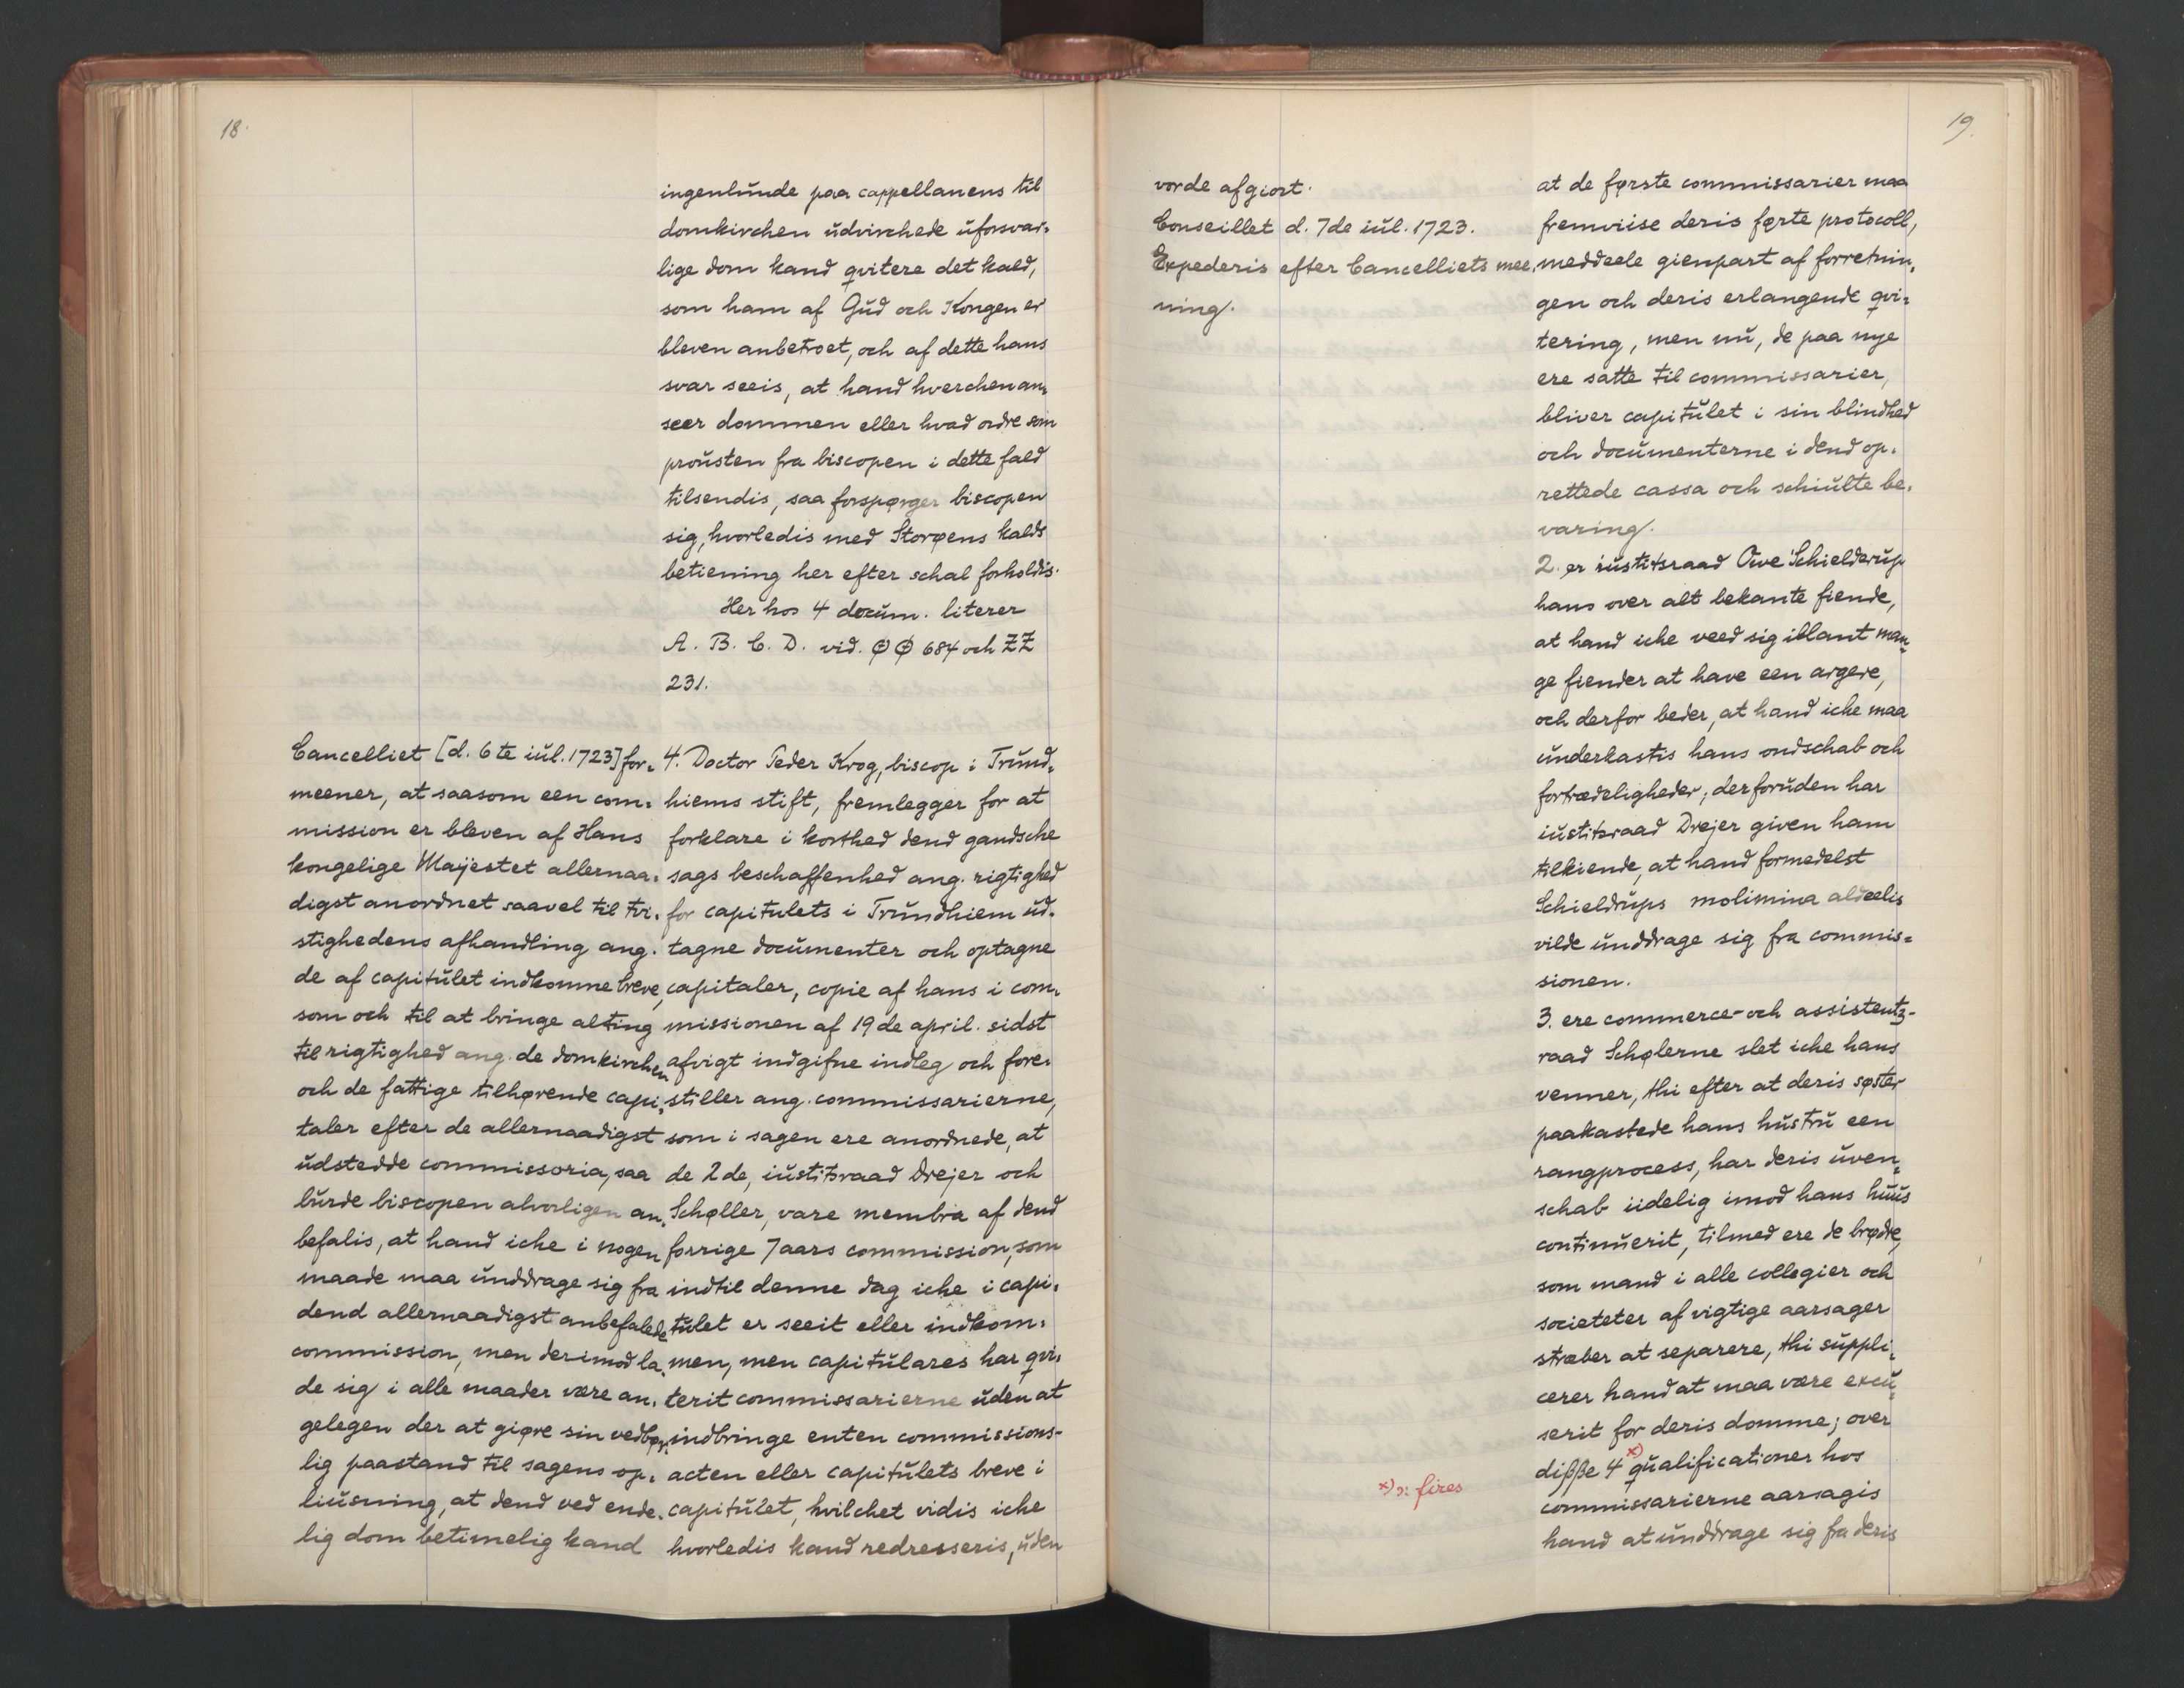 18.
ingenlunde paa cappellanens til
domkirchen udvirchede uforsvar-
lige dom kand qvitere det kald,
som ham af Gud och Kongen er
bleven anbetroet, och af dette hans
svar seeis, at hand hverchen an-
seer dommen eller hvad ordre som
prousten fra biscopen i dette fald
tilsendis, saa forspørger biscopen
sig, hvorledis med Storøens kalds
betiening her efter schal forholdis.
Her hos 4 docum. literer
A. B. C. D. vid. ØØ 684 och ZZ
231.
Cancelliet [d. 6te iul. 1723] for-
meener, at saasom een com-
mission er bleven af Hans
kongelige Mayestet allernaa-
digst anordnet saavel til tvi-
stighedens afhandling ang.
de af capitulet indkomne breve,
som och til at bringe alting
til rigtighed ang. de domkirchen
och de fattige tilhørende capi-
taler efter de allernaadigst
udstedde commissoria, saa
burde biscopen alvorligen an-
befalis, at hand iche i nogen
maade maa unddrage sig fra
dend allernaadigst anbefalede
commission, men derimod la-
de sig i alle maader være an-
gelegen der at giøre sin vedbør-
lig paastand til sagens op-
liusning, at dend ved ende-
lig dom betimelig kand
4. Doctor Peder Krog, biscop i Trund-
hiems stift, fremlegger for at
forklare i korthed dend gandsche
sags beschaffenhed ang. rigtighed
for capitulets i Trundhiem ud-
tagne documenter och optagne
capitaler, copie af hans i com-
missionen af 19de april. sidst
afvigt indgifne indleg och fore-
stiller ang. commissarierne,
som i sagen ere anordnede, at
de 2de, iustitsraad Drejer och
Schøller, vare membra af dend
forrige 7 aars commission, som
indtil denne dag iche i capi-
tulet er seeit eller indkom-
men, men capitulares har qvi-
terit commissarierne uden at
indbringe enten commissions-
acten eller capitulets breve i
capitulet, hvilchet vidis iche
hvorledis kand redresseris, uden
19.
vorde afgiort.
Conseillet d. 7de iul. 1723.
Expederis efter Cancelliets mee-
ning.
at de første commissarier maa
fremviise deris førte protocoll,
meddeele gienpart af forretnin-
gen och deris erlangende qvi-
tering, men nu, de paa nye
ere satte til commissarier,
bliver capitulet i sin blindhed
och documenterne i dend op-
rettede cassa och schiulte be-
varing.
2. er iustitsraad Ove Schielderup
hans over alt bekante fiende,
at hand iche veed sig iblant man-
ge fiender at have een argere,
och derfor beder, at hand iche maa
underkastis hans ondschab och
fortrædeligheder; derforuden har
iustitsraad Drejer given ham
tilkiende, at hand formedelst
Schieldrups molimina aldeelis
vilde unddrage sig fra commis-
sionen.
3. ere commerce- och assistentz-
raad Schølerne slet iche hans
venner, thi efter at deris søster
paakastede hans hustru een
rangprocess, har deris uven-
schab iidelig imod hans huus
continuerit, tilmed ere de brødre,
som mand i alle collegier och
societeter af vigtige aarsager
stræber at separere, thi suppli-
cerer hand at maa være excu-
serit for deris domme; over
diẞe 4 x) qualificationer hos
commissarierne aarsagis
hand at unddrage sig fra deris
x) ɔ: fires